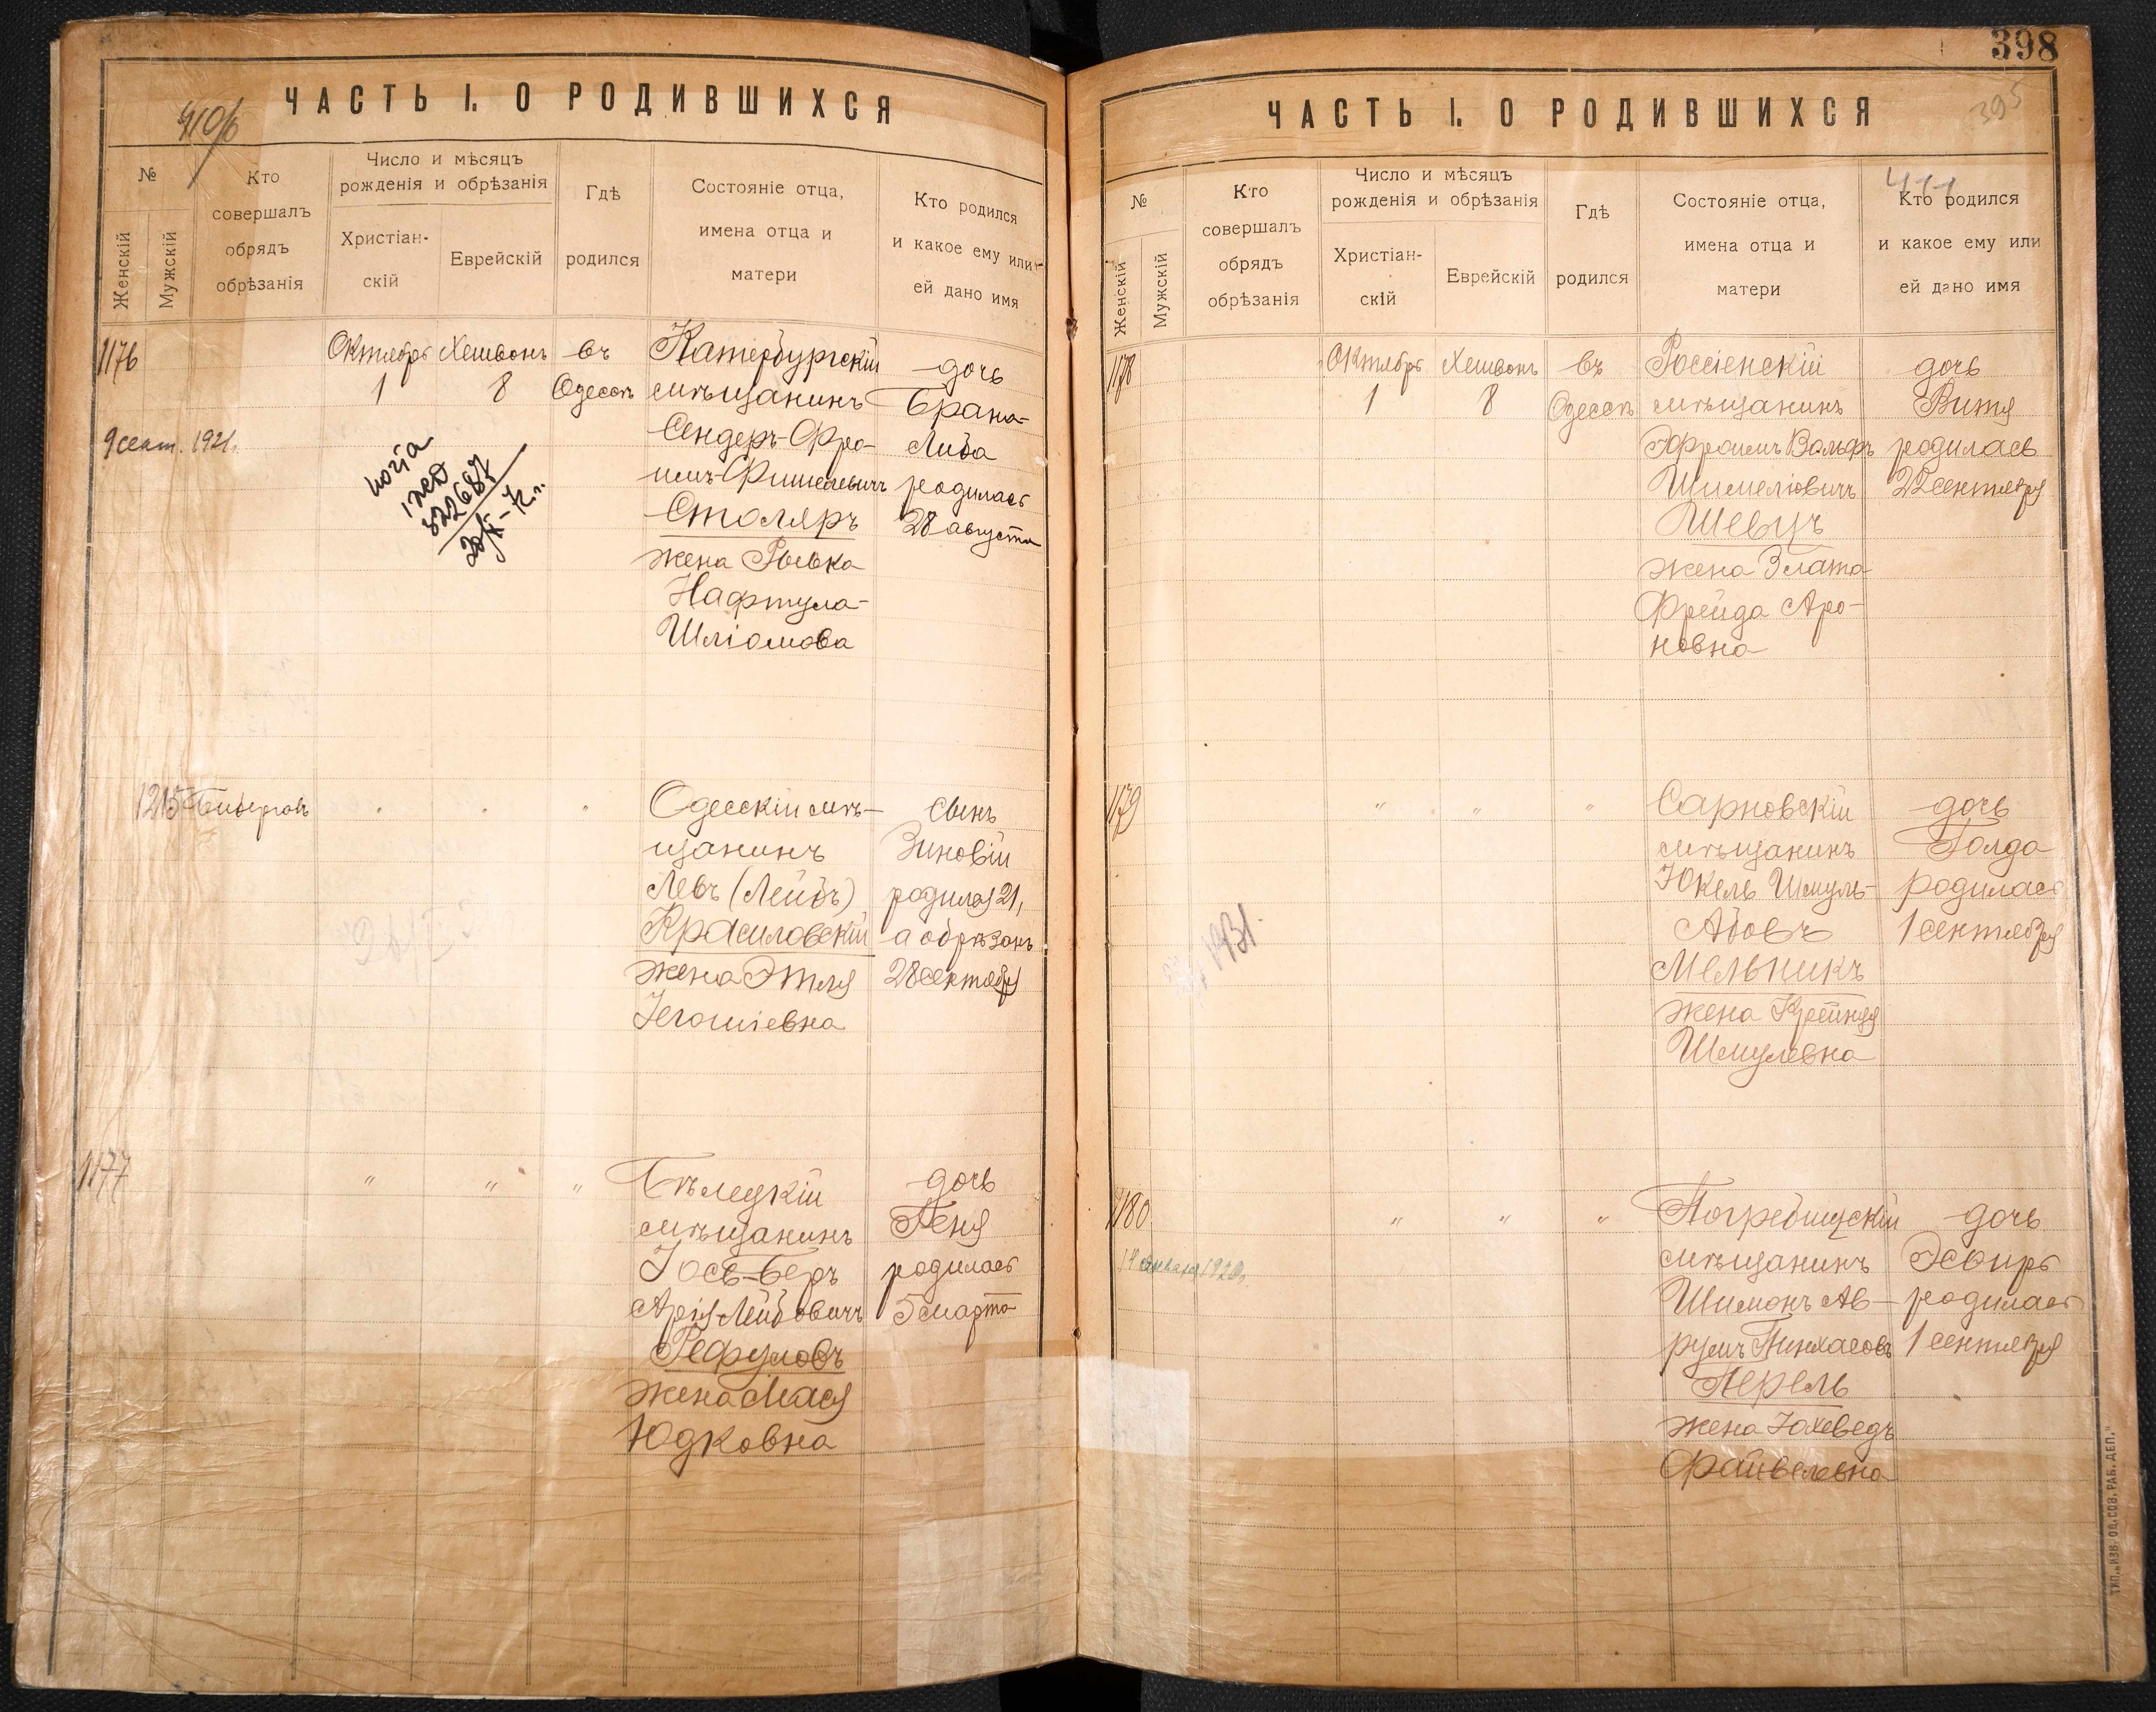 398
ЧАСТЬ I. О РОДИВШИХСЯ
№
Женскій
Мужскій
Кто совершалъ обрядъ обрѣзанія
Число и мѣсяцъ рожденія и обрѣзанія
Христіан-
скій
Еврейскій
Гдѣ родился
Состояніе отца,
имена отца и
матери
Кто родился
и какое ему или
ей дано имя
1176
Октябрь Хешвонъ въ Катербургскій дочь
1 8 Одессѣ мѣщанинъ Брана-
9 сент. 1921. Сендеръ-Фро- Либа
имъ-Фишелевичъ родилась
Столяръ 28 августа
жена Рывка
Нафтула-
Шліомова
копія
822687
1215 Бибергалъ " " " Одесскій мѣ- сынъ
щанинъ Зиновій
Левъ (Лейбъ) родился 21,
Красиловскій а обрѣзанъ
жена Этля 28 сентября
Іегошіевна
1177 " " " Бѣлецкій дочь
мѣщанинъ Пеня
Іось-Беръ родилась
Арія-Лейбовичъ 5 марта
Рефуловъ
жена Мася
Юдковна
ЧАСТЬ I. О РОДИВШИХСЯ
395
№
Женскій
Мужскій
Кто совершалъ обрядъ обрѣзанія
Число и мѣсяцъ рожденія и обрѣзанія
Христіан-
скій
Еврейскій
Гдѣ родился
Состояніе отца,
имена отца и
матери
Кто родился
и какое ему или
ей дано имя
1178 Октябрь Хешвонъ въ Россіенскій дочь
1 8 Одессѣ мѣщанинъ Витя
Эфроимъ Вольфъ родилась
Шимеліовичъ 22 сентября
Шевцъ
жена Злата
Фрейда Аро-
новна
1179 " " " Сарновскій дочь
мѣщанинъ Голда
Юкель Шмуль- родилась
Абовъ 1 сентября
1931.
Мельникъ
жена Крейндя
Шмулевна
1180 " " " Погребищскій дочь
14 января 1920. мѣщанинъ Эсѳирь
Шимонъ Ав- родилась
румъ Пинхасовъ 1 сентября
Перель
жена Іохеведъ
Файвелевна
ТИП. „ИЗВ. ОД. СОВ. РАБ. ДЕП."